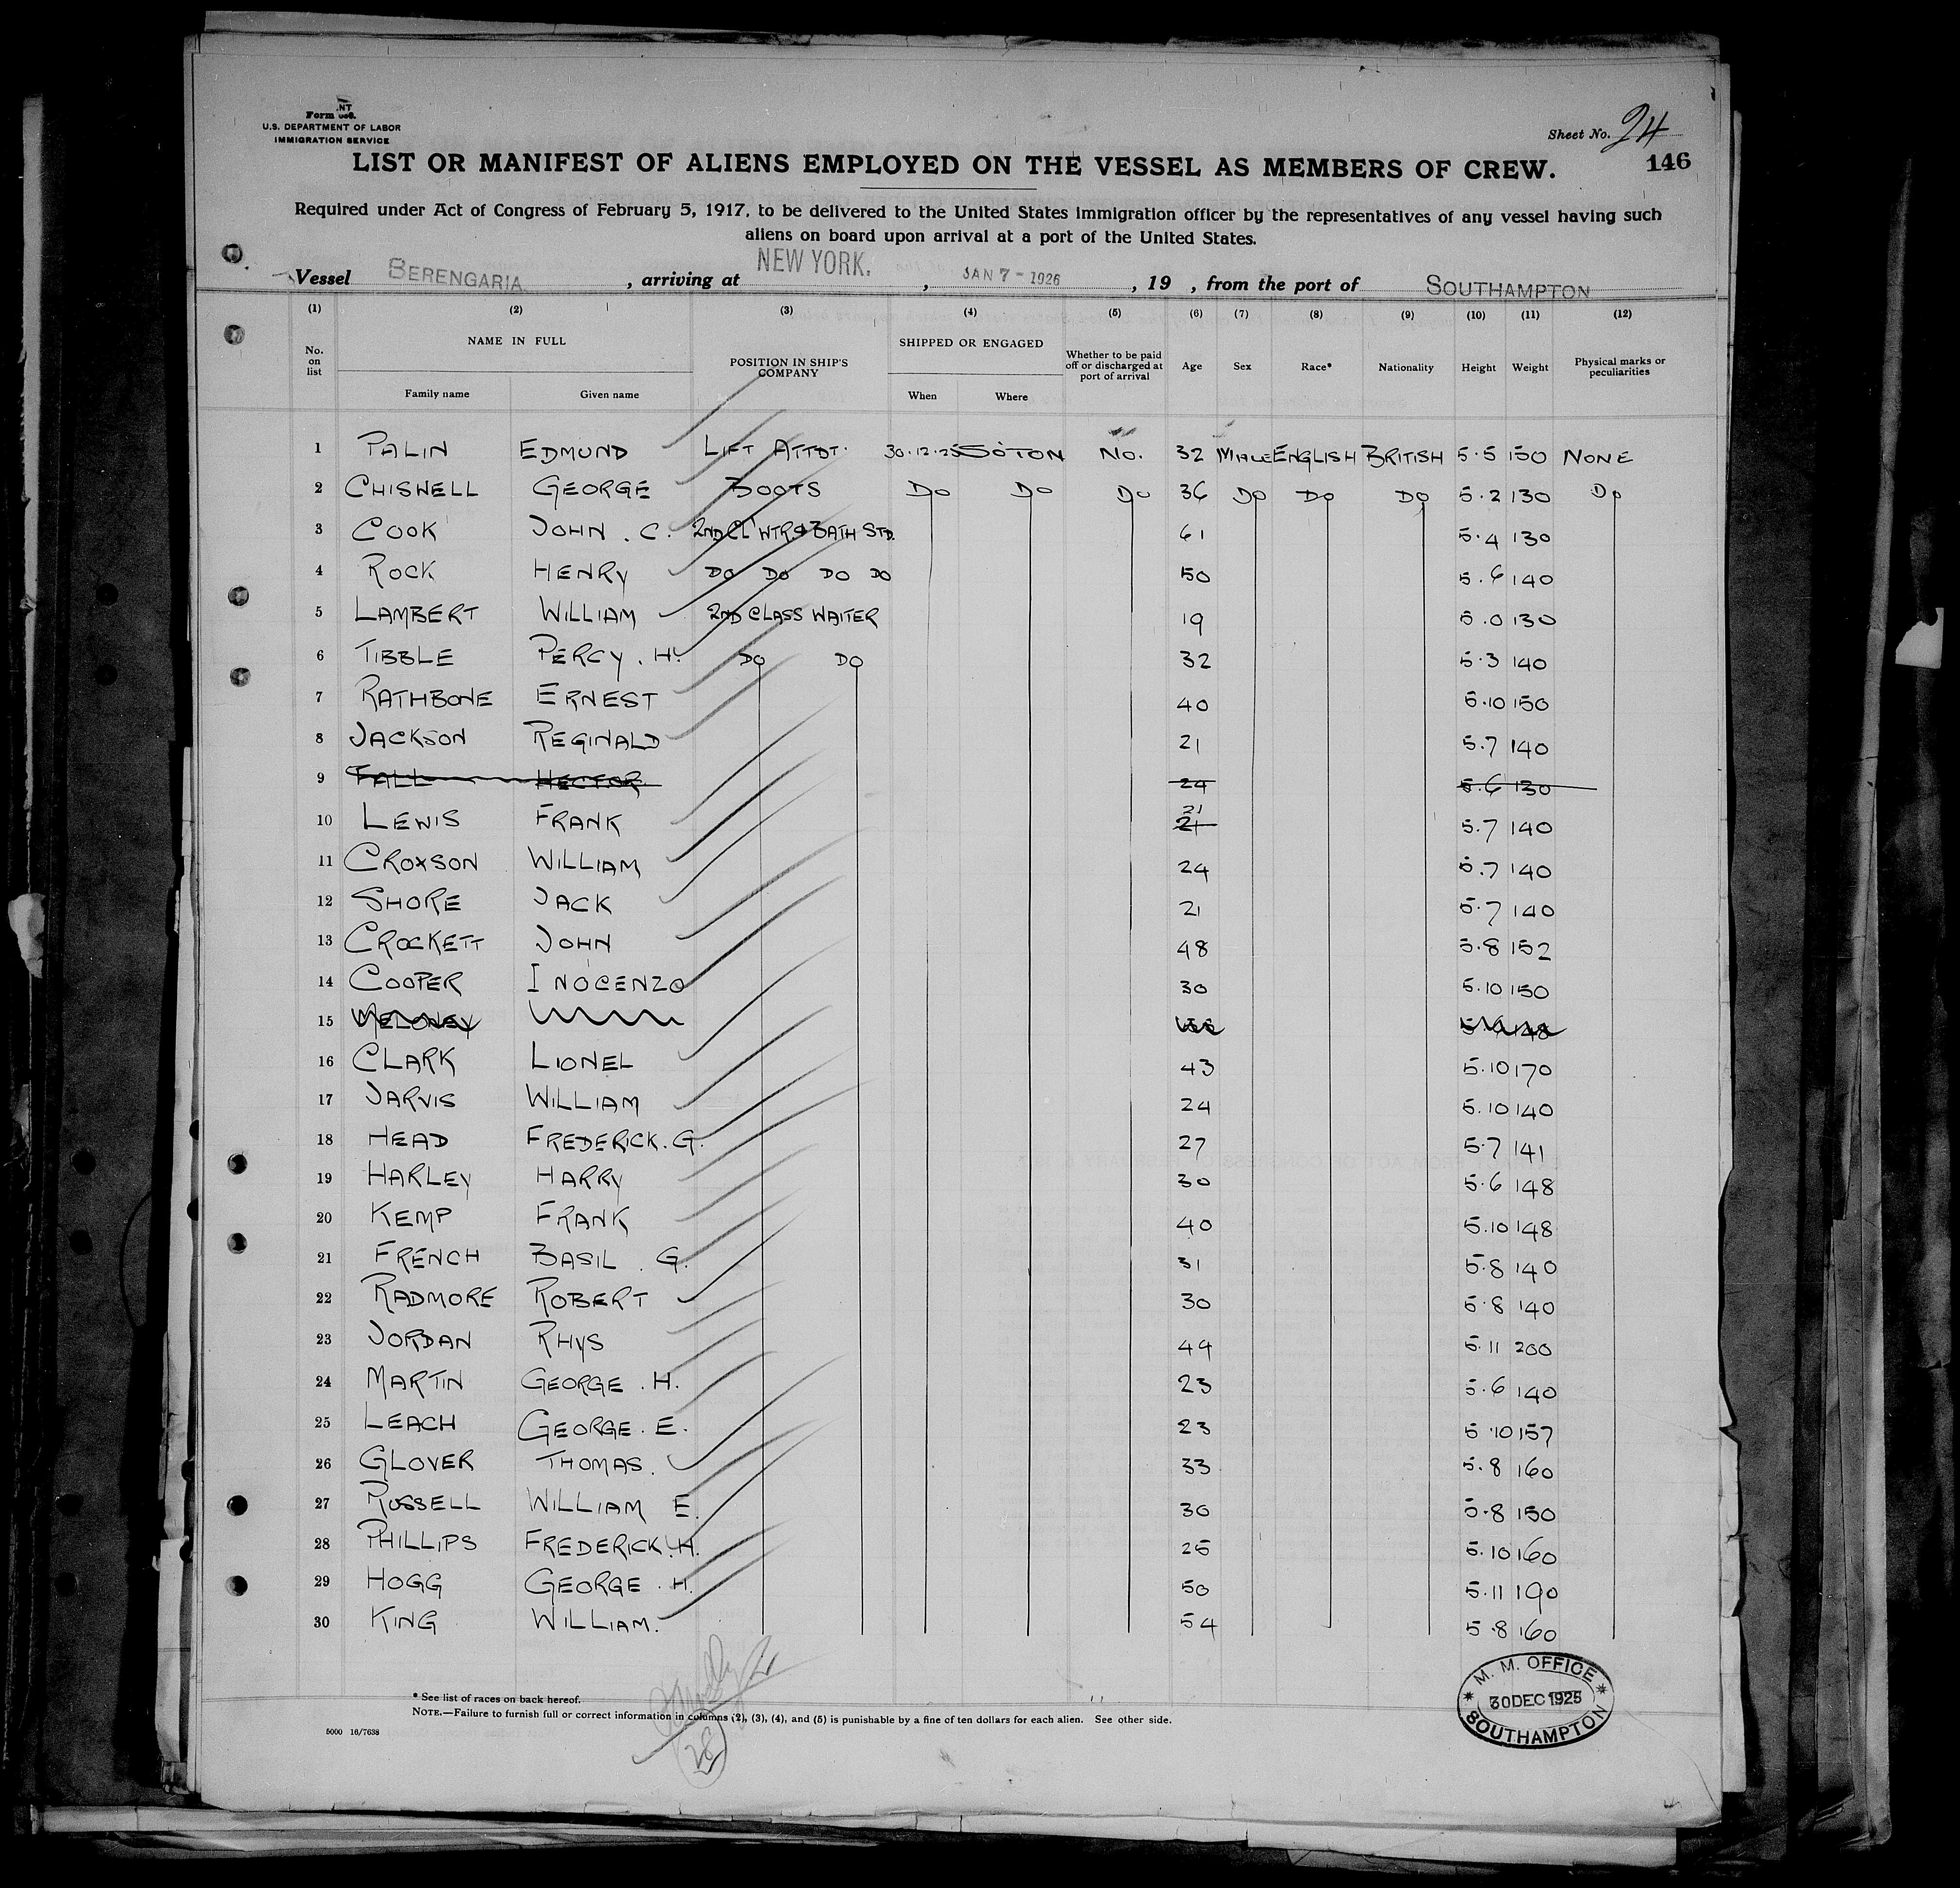 Form
U.S. DEPARTMENT OF LABOR
IMMIGRATION SERVICE
Sheet No. 24
146
LIST OR MANIFEST OF ALIENS EMPLOYED ON THE VESSEL AS MEMBERS OF CREW.
Required under Act of Congress of February 5, 1917, to be delivered to the United States immigration officer by the representatives of any vessel having such
aliens on board upon arrival at a port of the United States.
Vessel BERENGARIA, arriving at NEW YORK., JAN 7 - 1926, 19 , from the port of SOUTHAMPTON
(1) (2) (3) (4) (5) (6) (7) (8) (9) (10) (11) (12)
No. on list NAME IN FULL POSITION IN SHIP'S COMPANY SHIPPED OR ENGAGED Whether to be paid off or discharged at port of arrival Age Sex Race* Nationality Height Weight Physical marks or peculiarities
Family name Given name When Where
1 PALIN EDMUND LIFT ATTDT. 30.12.25 SOTON NO. 32 MALE ENGLISH BRITISH 5.5 150 NONE
2 CHISWELL GEORGE BOOTS DO DO DO 36 DO DO DO 5.2 130 DO
3 COOK JOHN . C. 2ND CL WTR & BATH STD. 61 5.4 130
4 ROCK HENRY DO DO DO DO 50 5.6 140
5 LAMBERT WILLIAM 2ND CLASS WAITER 19 5.0 130
6 TIBBLE PERCY . H. DO DO 32 5.3 140
7 RATHBONE ERNEST 40 5.10 150
8 JACKSON REGINALD 21 5.7 140
9 FALL HECTOR 24 5.6 130
10 LEWIS FRANK 21 21 5.7 140
11 CROXSON WILLIAM 24 5.7 140
12 SHORE JACK 21 5.7 140
13 CROCKETT JOHN 48 5.8 152
14 COOPER INOCENZO 30 5.10 150
15 MELONEY
16 CLARK LIONEL 43 5.10 170
17 JARVIS WILLIAM 24 5.10 140
18 HEAD FREDERICK . G. 27 5.7 141
19 HARLEY HARRY 30 5.6 148
20 KEMP FRANK 40 5.10 148
21 FRENCH BASIL . G. 31 5.8 140
22 RADMORE ROBERT 30 5.8 140
23 JORDAN RHYS 49 5.11 200
24 MARTIN GEORGE . H. 23 5.6 140
25 LEACH GEORGE . E. 23 5.10 157
26 GLOVER THOMAS. 33 5.8 160
27 RUSSELL WILLIAM E. 30 5.8 150
28 PHILLIPS FREDERICK . H. 25 5.10 160
29 HOGG GEORGE . H. 50 5.11 190
30 KING WILLIAM. 54 5.8 160
* See list of races on back hereof.
NOTE.—Failure to furnish full or correct information in columns (2), (3), (4), and (5) is punishable by a fine of ten dollars for each alien. See other side.
5000 16/7638
28
M. M. OFFICE
30 DEC 1925
SOUTHAMPTON